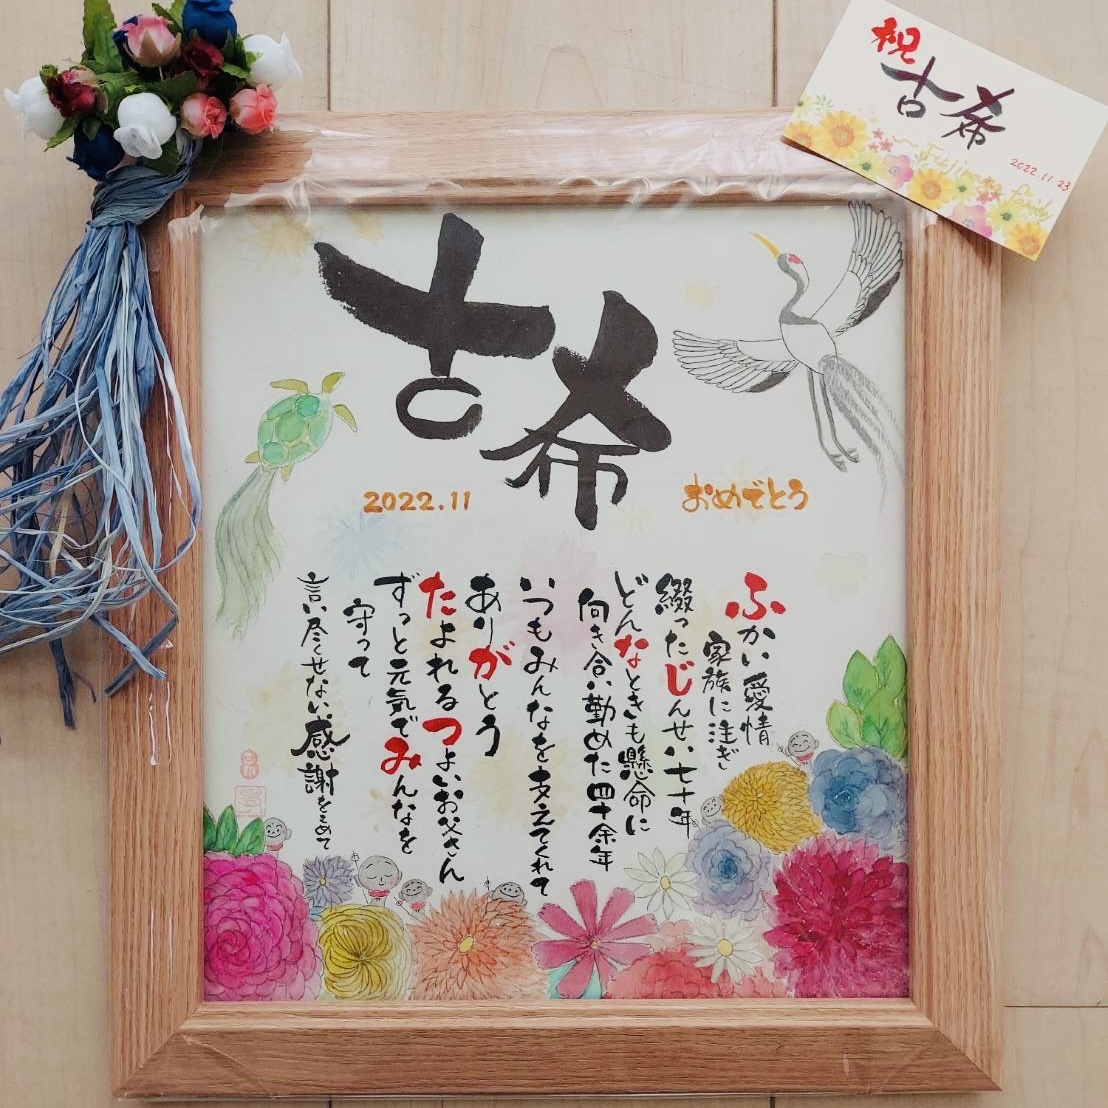 古希
2022.11
おめでとう
ふかい愛情
家族に注ぎ
綴ったじんせい七十年
どんなときも懸命に
向き合い勤めた四十余年
いつもみんなを支えてくれて
ありがとう
たよれるつよいお父さん
ずっと元気でみんなを
守って
言い尽くせない感謝をこめて
祝
古希
2022.11.23
family